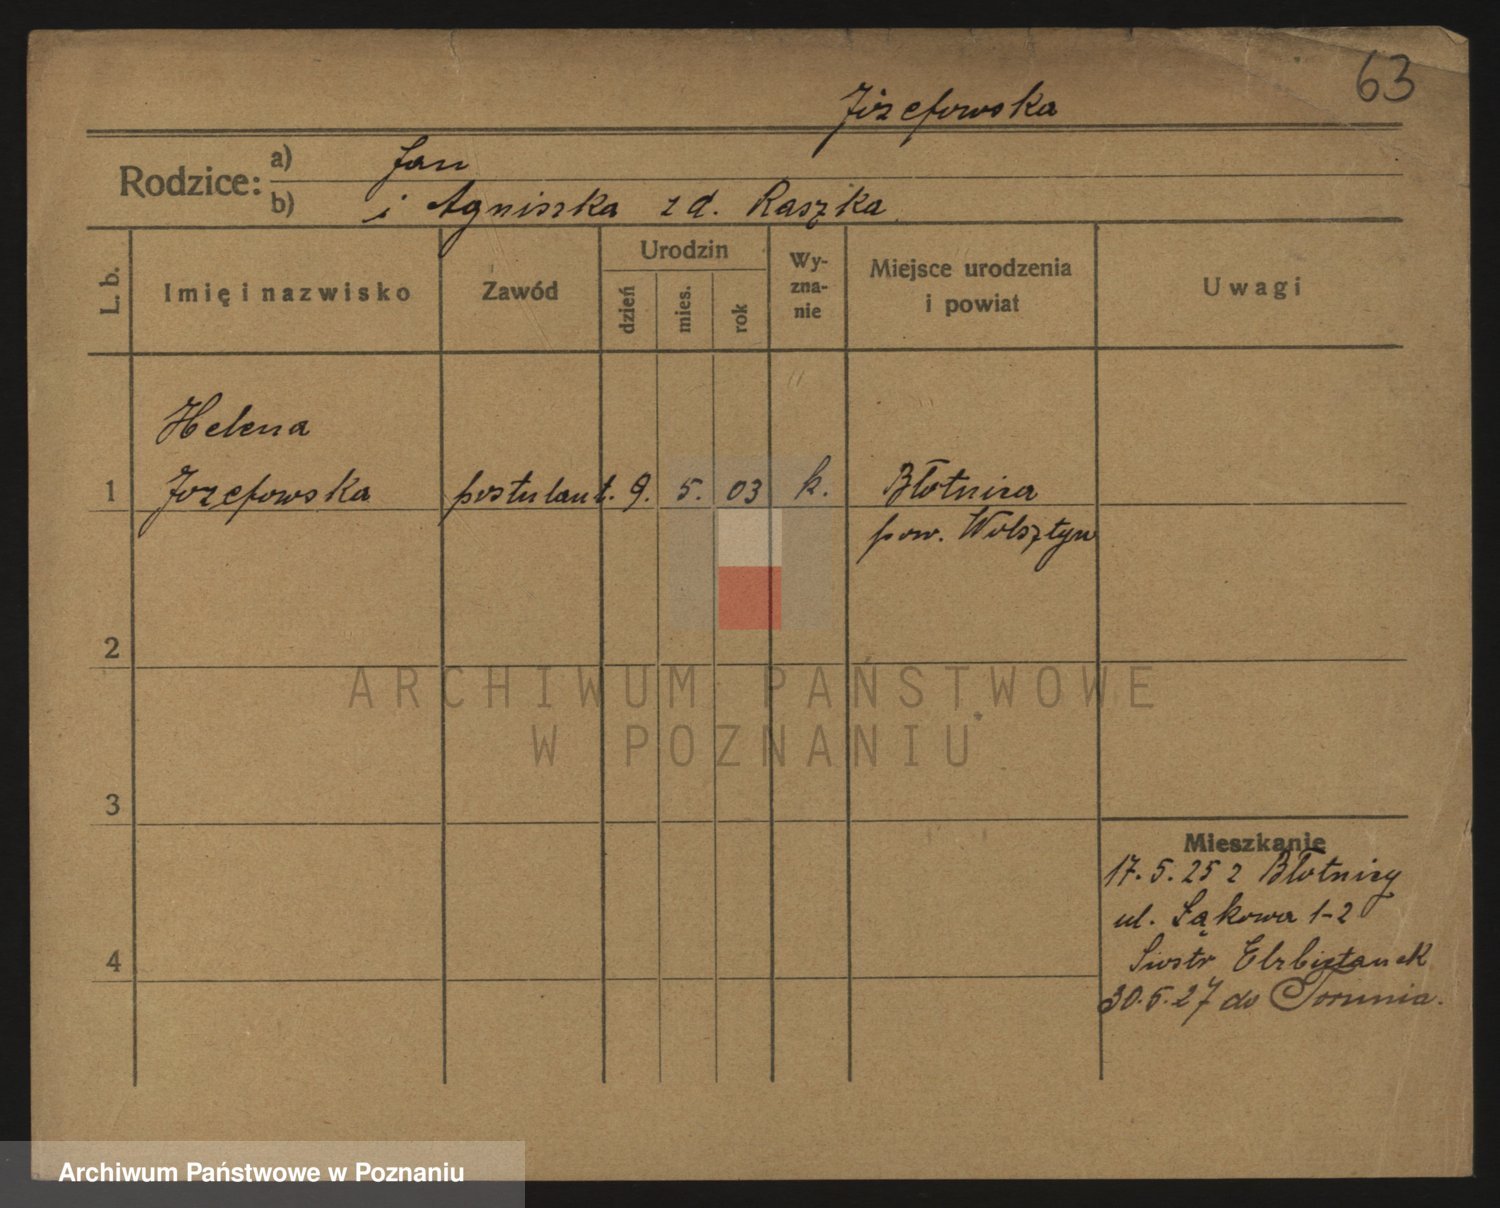 63
Józefowska
Rodzice:
a) Jan
b) i Agniszka z d. Raszka
L. b.
Imię i nazwisko
Zawód
Urodzin
dzień
mies.
rok
Wy-
zna-
nie
Miejsce urodzenia
i powiat
Uwagi
Helena
1 Józefowska postulant. 9. 5. 03 k. Błotnica
pow. Wolsztyn
2
3
4
Mieszkanie
17.5.25 z Błotnicy
ul. Łąkowa 1-2
Siostr Elzbietanek
30.6.27 do Torunia.
ARCHIWUM PAŃSTWOWE
W POZNANIU
Archiwum Państwowe w Poznaniu